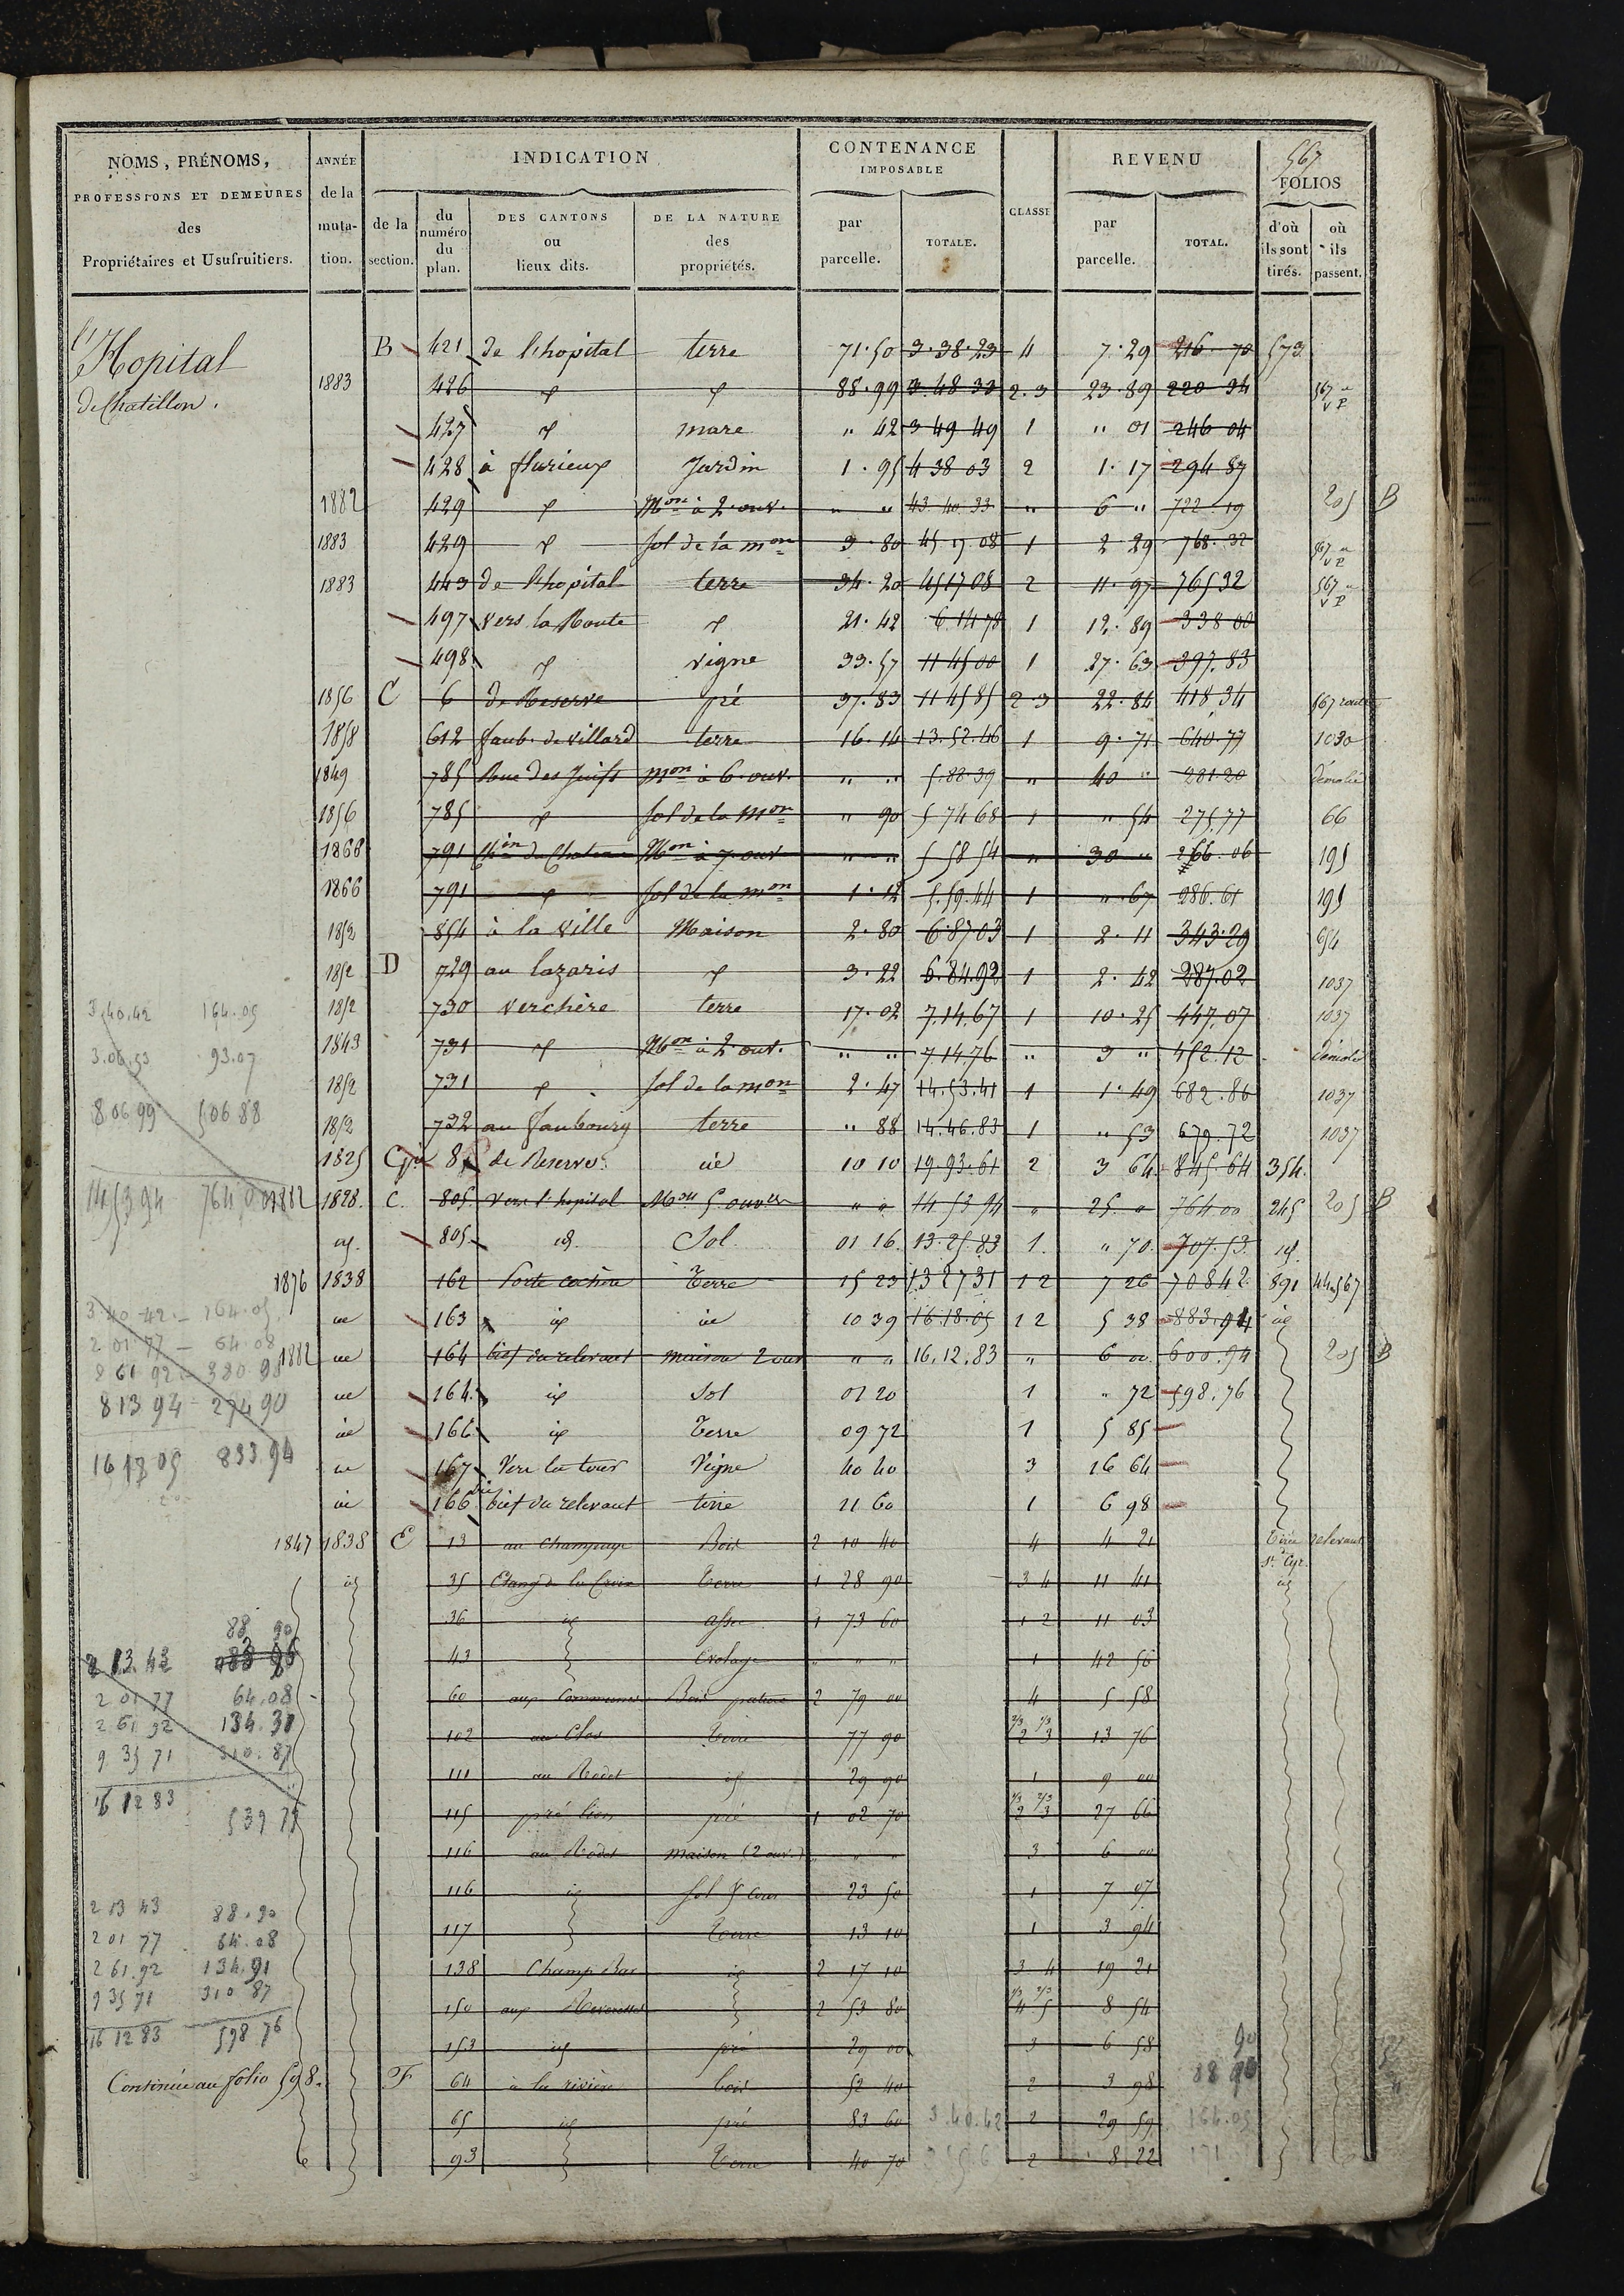 567
NOMS, PRÉNOMS, PROFESSIONS ET DEMEURES des Propriétaires et Usufruitiers.
ANNÉE de la muta-tion.
INDICATION
de la section.
du numéro du plan.
DES CANTONS ou lieux dits.
DE LA NATURE des propriétés.
CONTENANCE IMPOSABLE
par parcelle.
TOTALE.
CLASSE
REVENU
par parcelle.
TOTAL.
FOLIOS
d'où ils sont tirés.
où ils passent.
l'Hopital
de Chatillon.
B 421 de l'hopital terre 71.50 3.38.23 4 7.29 216.70 573
1883 426 id 88.99 3.48.33 2.3 23.89 220 34 567
427 id mare " 42 3 49 49 1 " 01 246 04
428 à flurieux Jardin 1.95 4 38 03 2 1.17 294 87
1882 429 id Mon à 2 ouv. " " 43 40 33 " 6 " 722 19 205 B
1883 429 id sol de la mon 3.80 45.17.08 1 2 29 768.32 567
1883 443 de l'hopital terre 34.20 45 17 08 2 11.97 765 32 567
497 Vers la Route id 21.42 6 14 78 1 12.89 338 00
498 id vigne 33.57 11 45 00 1 27.63 397.83
1856 C 6 de Reserve pré 37.83 11 45 85 2 3 22.84 418 34 567 route
1858 612 faub. de villard terre 16.14 13.52.46 1 9.71 640.77 1030
1849 785 Rue des Juifs mon à 6 ouv. " " 5.88.39 " 40 " 281 20 démolie
1856 785 id sol de la Mon " 90 5 74 68 1 " 54 275.77 66
1866 791 Chin du Chateau Mon à 7 ouv " " 5 58 54 " 30 " 266.06 195
1866 791 id sol de la mon 1.12 5.59.44 1 " 67 286.61 195
1852 854 à la ville Maison 2.80 6.87 03 1 2.11 343.29 654
1852 D 729 au lazaris id 3.22 6.84.92 1 2.42 287.02 1037
3.40.42 164.05
1852 730 verchère terre 17.02 7.14.67 1 10.25 447.07 1037
3.06.53 93.07
1843 731 id Mon à 2 ouv. " " 7.14.76 " 3 " 452.12 démolie
1852 731 id sol de la mon 2.47 14.53.41 1 1.49 682.86 1037
8 06 99 506 88
1852 732 au faubourg terre " 88 14.46.83 1 " 53 679.72 1037
1825 8 de Reserve id 10 10 19.93.61 2 3 64 845.64 354.
14 53 94 764 00
1882 1828. C. 805. Vers l'hopital Mon 5 ouvres " " 14 53 94 " 25. " 764 00 245 205 B
id. 805. id. Sol 01 16. 13.25.83 1. " 70. 707.53. id.
1876 1838 162 Porte Terre 15 23 13 27 31 1 2 7 26 708 42 891 44.567
3.40 42 - 164.05
id 163 id id 10 39 16.18.05 1 2 5 38 883.94 id
2 01 77 - 64.08
1882 id 164 bief du relevant maison 2 ouv " " 16.12.83 " 6 00 600.94 205 B
8 61 92 - 380 98
id 164 id Sol 01 20 1 " 72 598.76
8 13 94 274 90
id 166 id Terre 09 72 1 5 85
16 18 05 883 94
id 167 Vers la tour Vigne 40 40 3 16 64
id 166 bis bief du relevant terre 11 60 1 6 98
1847 1838 E 13 au Champage Bois 2 10 40 4 4 21 Tirée de St. Cyr relevant
id 35 Etang de la Croix Terre 1 28 90 3 4 11 41 id
36 id assec 1 73 60 1 2 11 03
88 90
43 Evolage " " " 1 42 56
2 13.43
60 aux Communes Bois pature 2 79 00 4 5 58
2 01 77 64.08
2 61 92 134.31
102 au Clos Terre 77 90 2/3 1/3 2 3 13 76
9 35 71 310.87
111 au Rodet id 29 90 1 9 00
16 12 83 539 79
115 pré lion pré 1 02 70 1/3 2/3 2 3 27 66
116 au Rodet maison (2 ouv.) " " " 3 6 00
116 id sol & cour 23 50 1 7 07
2 13 43 88.90
117 Terre 13 10 1 3 94
2 01 77 64.08
2 61.92 134.91
138 Champ Bas id 2 17 10 3 4 19 21
9 35 71 310 87
150 aux 2 53 80 1/3 2/3 4 5 8 54
16 12 83 598 76
153 id pré 29 00 3 6 58
Continuée au folio 598.
F 64 à la rivière bois 52 40 2 3 98
65 id pré 83 60 3.40.42 2 29 59 164.05
93 Terre 40 70 2 8 22